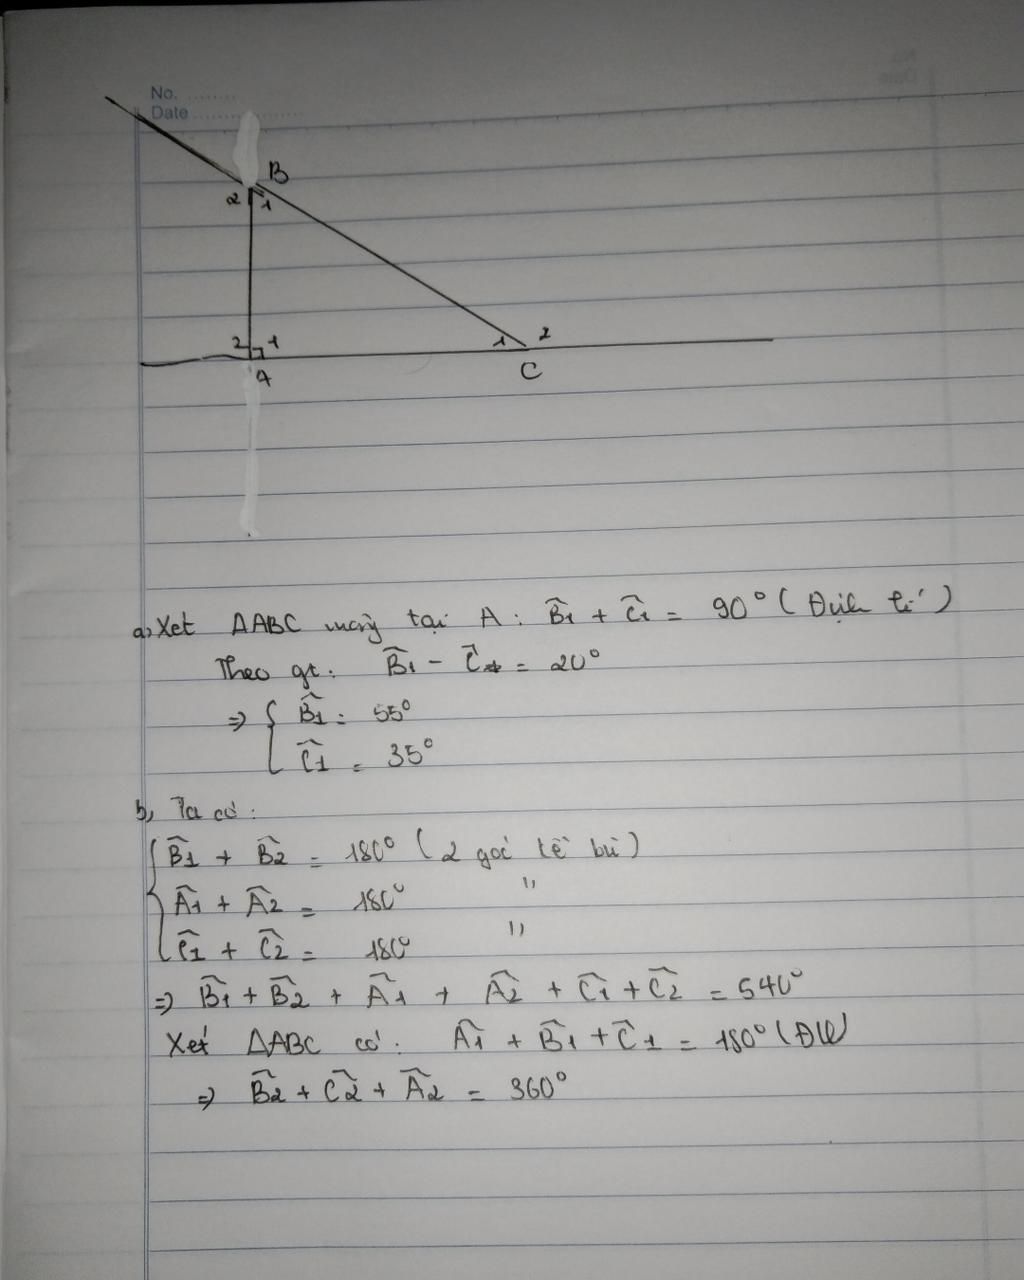 No. ........
Date ...................
B
2 1
2 1
1 2
A
C
a, Xét ΔABC vuông tại A : B̂1 + Ĉ1 = 90° ( Định lí )
Theo gt : B̂1 - Ĉ1 = 20°
=> { B̂1 = 55°
Ĉ1 = 35°
b, Ta có :
{ B̂1 + B̂2 = 180° ( 2 góc kề bù )
Â1 + Â2 = 180° "
Ĉ1 + Ĉ2 = 180° "
=> B̂1 + B̂2 + Â1 + Â2 + Ĉ1 + Ĉ2 = 540°
Xét ΔABC có : Â1 + B̂1 + Ĉ1 = 180° (ĐL)
=> B̂2 + Ĉ2 + Â2 = 360°